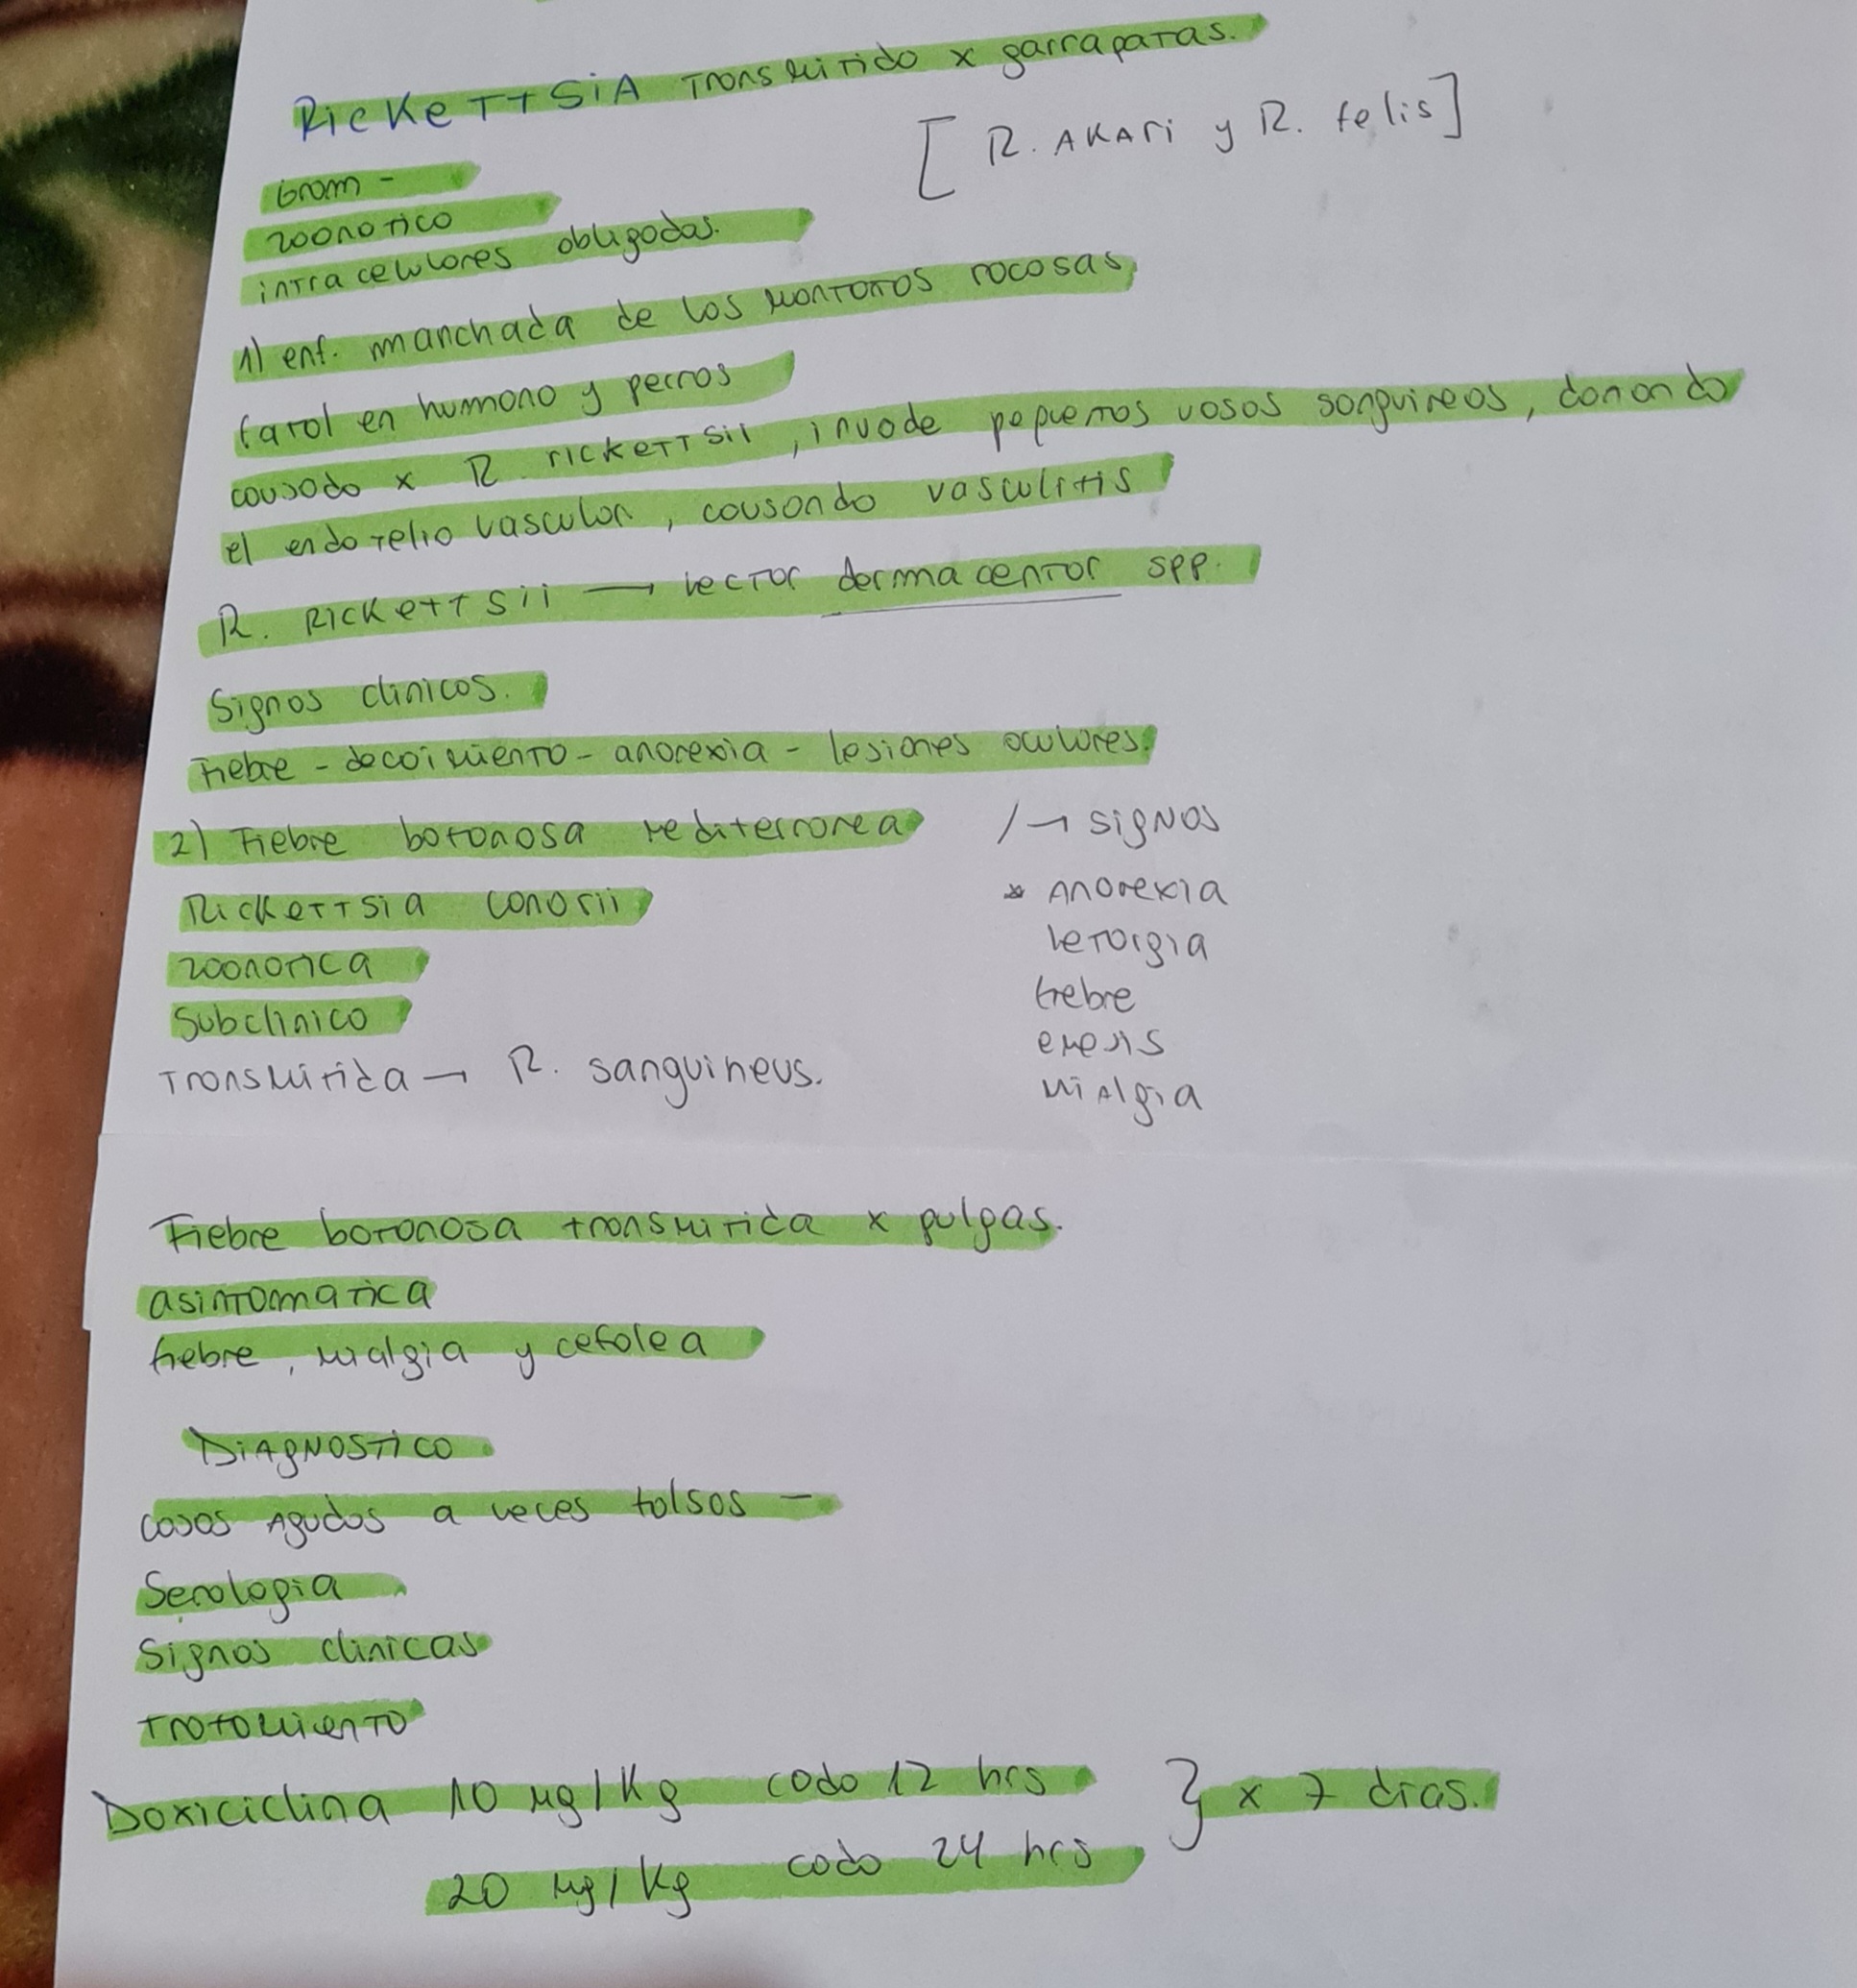 RicKeTTSiA Transmitido x garrapatas.
[R. AKAri y R. felis]
Gram -
zoonotico
intracelulares obligadas.
1) enf. manchada de las montañas rocosas
fatal en humano y perros
causado x R. rickettsii, invade pequeños vasos sanguineos, danando
el endotelio vascular, causando vasculitis
R. Rickettsii → vector dermacentor spp.
Signos clinicos.
Fiebre - decaimiento - anorexia - lesiones oculares.
2) Fiebre botonosa mediterranea / → signos
Rickettsia conorii * Anorexia
zoonotica letargia
Subclinico fiebre
Transmitida → R. sanguineus. emesis
miAlgia
Fiebre botonosa transmitida x pulgas.
asintomatica
fiebre, mialgia y cefalea
DiAgNOSTICO
casos Agudos a veces falsos -
Serologia
Signos clinicas
tratamiento
Doxiciclina 10 mg/Kg cada 12 hrs } x 7 dias.
20 mg/Kg cada 24 hrs